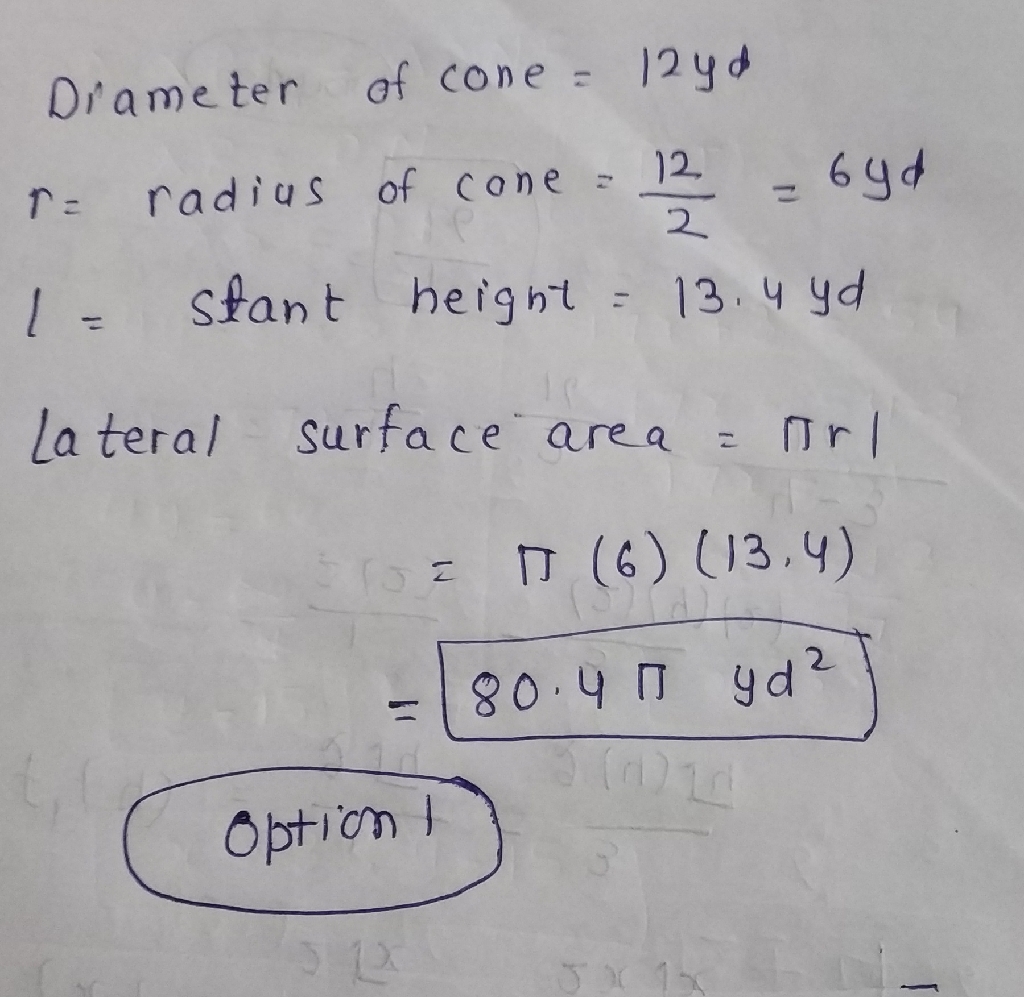 Diameter of cone = 12yd
r = radius of cone = 12/2 = 6yd
l = slant height = 13.4 yd
Lateral surface area = πrl
= π (6) (13.4)
= 80.4 π yd²
Option 1